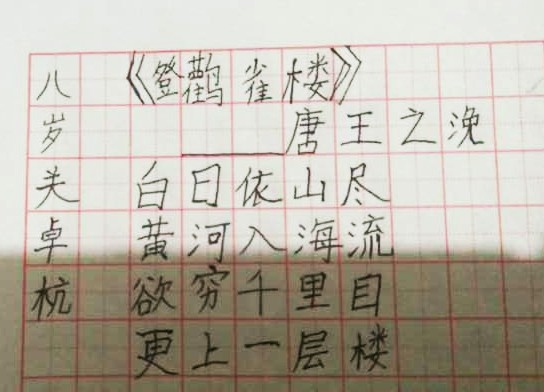 《登鹳雀楼》
唐王之浼
白日依山尽
黄河入海流
欲穷千里目
更上一层楼
八岁关卓杭